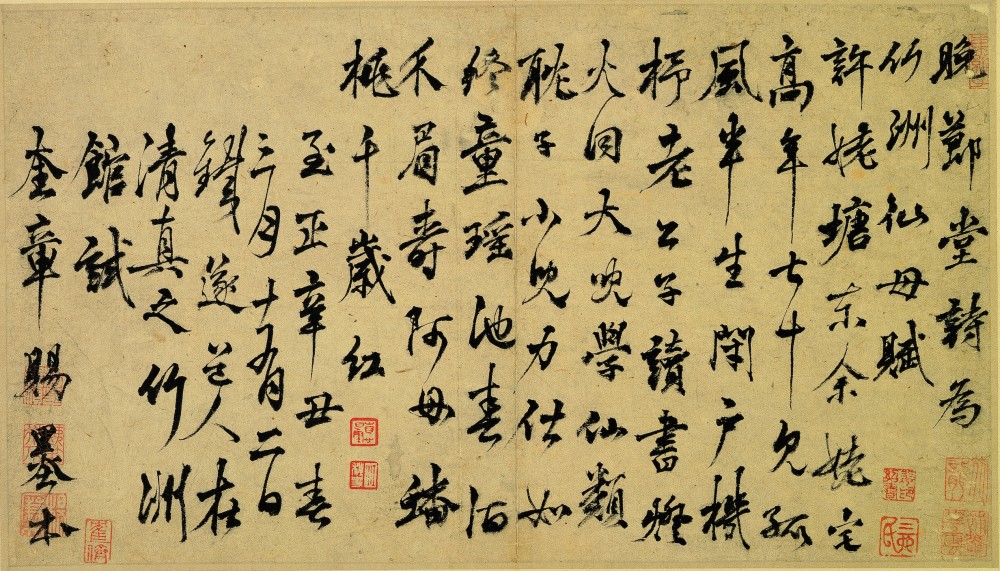 晚節堂詩為
竹洲仙母賦
許姥塘東余姥宅
高年七十見孤
風半生閉戶機
杼老公子讀書燈
火同大兒學仙類
耽子小兒力仕如
終童瑤池春酒
介眉壽阿母蟠
桃千歲紅
至正辛丑春
三月十有二日
鐵篴道人在
清真之竹洲
館試
奎章賜墨本